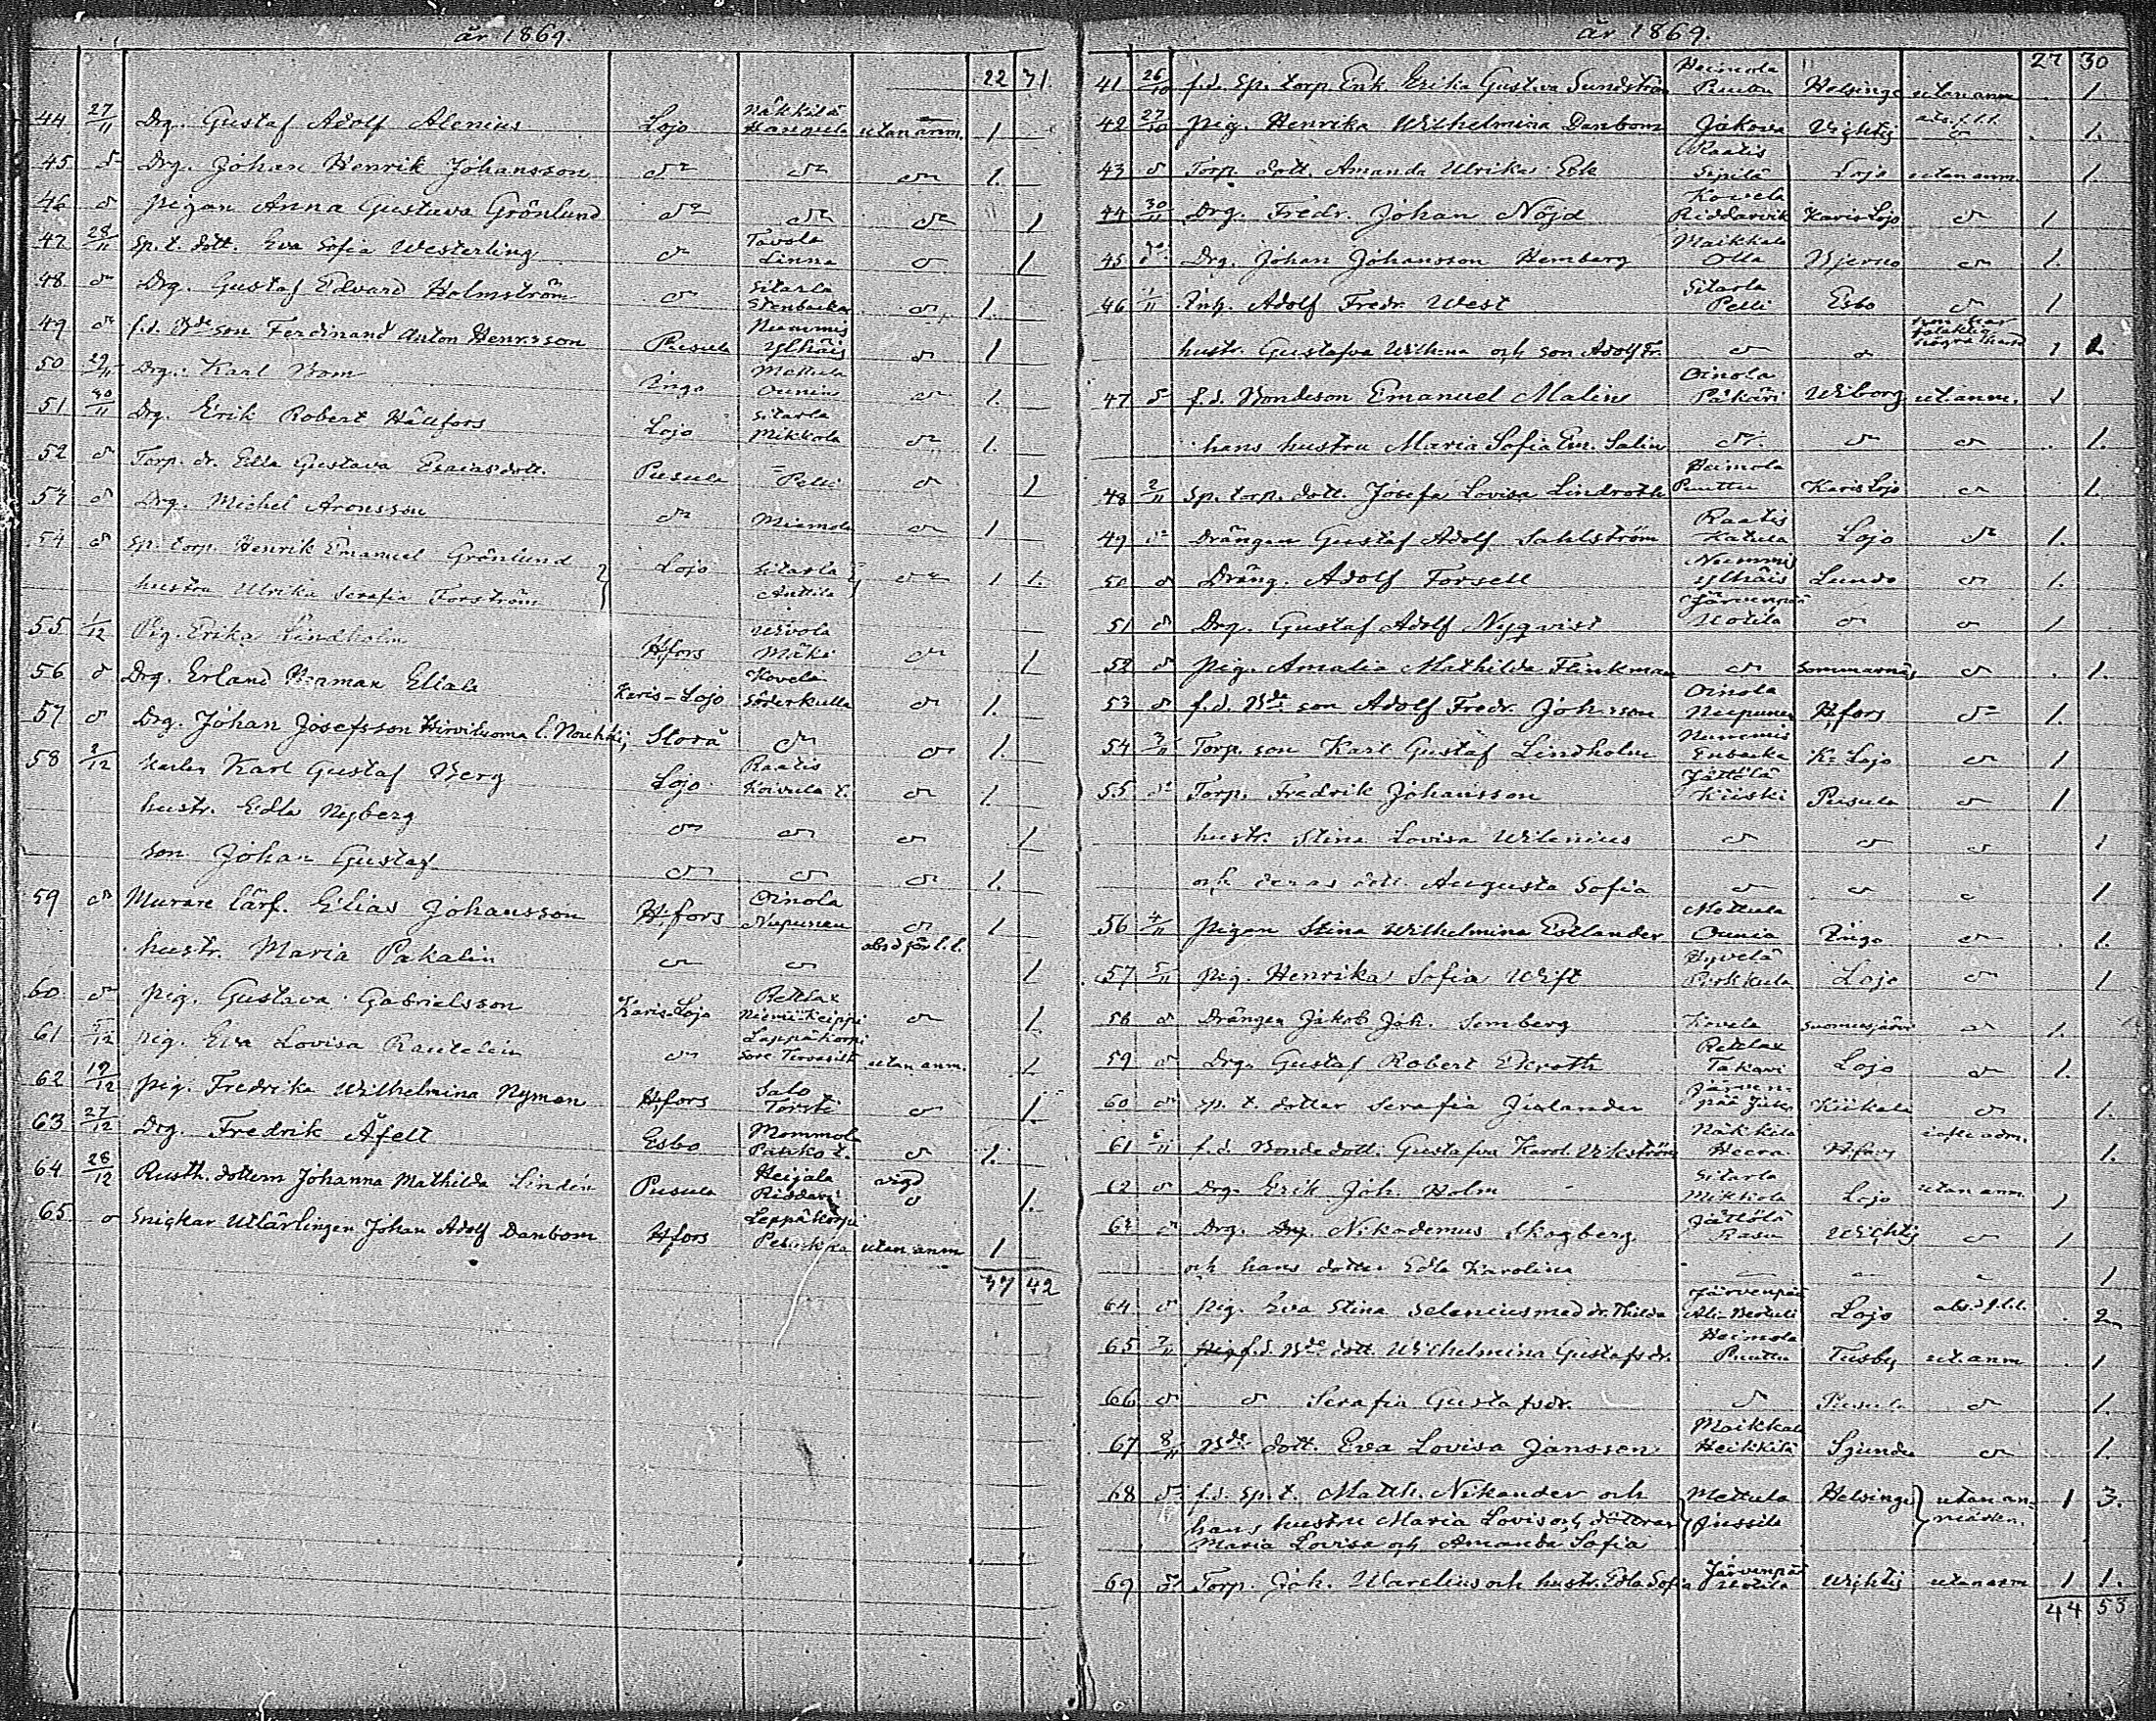 år 1869.
22 31
44 27/11 Drg. Gustaf Adolf Alenius Lojo Näkkilä Hangula utan anm. 1
45 d:o Drg. Johan Henrik Johansson d:o d:o d:o 1.
46 d:o pigan Anna Gustava Grönlund d:o d:o d:o 1
47 28/11 Sp. t. dott. Eva Sofia Westerling d:o Tavola Linna d:o 1
48 d:o Drg. Gustaf Edvard Holmström d:o Sitarla Stenbacka d:o 1.
49 d:o f.d. Bde son Ferdinand Anton Henrsson Pusula Nummis Ylhäis d:o 1
50 29/11 Drg. Karl Bom Ingo Mettula Ounius d:o 1.
51 30/11 Drg. Erik Robert Hällfors Lojo Sitarla Mikkola d:o 1.
52 d:o Torp. dr. Edla Gustava Esaiasdott. Pusula = Pelli d:o 1
53 d:o Drg. Michel Aronsson d:o Miemola d:o 1
54 d:o Sp. torp. Henrik Emanuel Grönlund Lojo Sitarla d:o 1 1.
hustru Ulrika Serafia Forström Anttila
55 1/12 Pig. Erika Lindholm H:fors Uivola Mäki d:o 1
56 d:o Drg. Erland Elials Karis-Lojo Kovela Söderkulla d:o 1.
57 d:o Drg. Johan Josefsson Hirvituoma l. Storå d:o d:o 1.
58 2/12 Karlen Karl Gustaf Berg Lojo Raatis Koivula t. d:o 1.
hustr. Edla Nyberg d:o d:o d:o 1
son Johan Gustaf d:o d:o d:o 1.
59 d:o Murare lärf. Elias Johansson H:fors Oinola Nupunen d:o 1
hustr. Maria Pakalin d:o d:o absd för l.l. 1
60 d:o pig. Gustava Gabrielsson Karis-Lojo Retlax Niemi-Keippi d:o 1.
61 5/12 pig. Eva Lovisa Rautelin d:o Leppäkorpi Sore Tervasilt utan anm. 1
62 19/12 pig. Fredrika Wilhelmina Nyman H:fors Salo Torsti d:o 1.
63 27/12 Drg. Fredrik Åfelt Esbo Mommola Panko t. d:o 1.
64 28/12 Rusth. dottern Johanna Mathilda Lindén Pusula Heijala Riddarv. vigd d:o 1.
65 d:o Snickar Utlärlingen Johan Adolf Danbom H:fors Leppäkorpi utan anm 1
37 42
år 1869.
27 30
41 26/10 f.d. Sp. torp. Enk. Erika Gustava Sundström Heimola Puuttu Helsinge utan anm 1
42 27/10 pig. Henrika Wilhelmina Danbom Jakova Wichtis 1.
43 d:o Torp. dott. Amanda Ulrika Ek Raatis Sipilä Lojo utan anm. 1
44 30/11 Drg. Fredr. Johan Nöjd Kovela Riddarvik Karis Lojo d:o 1
45 d:o Drg. Johan Johansson Hemberg Maikkala Olla Bjerno d:o 1.
46 1/11 Inh. Adolf Fredr. West Sitarla Pelli Esbo d:o 1
hustr. Gustafva Wilh:na och son Adolf Fr. d:o d:o 1 1.
47 d:o f.d. Bondeson Emanuel Malin Oinola Pakari Wiborg ut. anm. 1
hans hustru Maria Sofia Em. Salin d:o d:o d:o 1.
48 2/11 Sp. torp. dott. Josefa Lovisa Lindroth Heimola Puuttu Karis Lojo d:o 1.
49 d:o Drängen Gustaf Adolf Sahlström Raatis Katula Lojo d:o 1.
50 d:o Dräng. Adolf Forsell Nummis Ylhäis Lundo d:o 1.
51 d:o Drg. Gustaf Adolf Nyqvist Järvenpää Uotila d:o d:o 1
52 d:o pig. Amalia Mathilda Flinkman d:o Sommarnäs d:o 1.
53 d:o f.d. Bde son Adolf Fredr. Joh:sson Oinola Nupunen H:fors d:o 1.
54 3/11 Torp. son Karl Gustaf Lindholm Nummis Enbacka K: Lojo d:o 1
55 d:o Torp. Fredrik Johansson Jättölä Kiiski Pusula d:o 1
hustr. Stina Lovisa Wilenius d:o d:o d:o 1
och deras dott. Augusta Sofia d:o d:o d:o 1
56 4/11 Pigan Stina Wilhelmina Estlander Mettula Ounia Ingo d:o 1.
57 5/11 pig. Henrika Sofia Wift Hyvelä Pirkkula Lojo d:o 1
58 d:o Drängen Jakob Joh. Semberg Kovela Suomusjärvi d:o 1.
59 d:o Drg. Gustaf Robert Ekroth Retlax Takari Lojo d:o 1.
60 d:o Sp. t. dotter Serafia Järvenpää Kiikala d:o 1.
61 6/11 f.d. Bonde dott. Gustafva Karol. Wikström Näkkilä Heera H:fors 1.
62 d:o Drg. Erik Joh. Holm Sitarla Mikkola Lojo utan anm. 1
63 d:o Drg. Nikodemus Skogberg Jättölä Rasu Wichtis d:o 1
och hans dotter Edla Karolina 1
64 d:o pig. Eva Stina Selenius med dr. Thilda Järvenpää Ali-Bertuli Lojo abs. d f.l.l. 2
65 7/11 f.d. Bde dott. Wilhelmina Gustafsdr. Heimola Puuttu Tusby ut. anm 1
66 d:o d:o Serafia Gustafsdr. d:o Pusula d:o 1.
67 8/11 Bde dott. Eva Lovisa Jansson Maikkala Heikkilä Sjundeå d:o 1.
68 d:o f.d. Sp. t. Matth. Nikander och Mettula Helsinge utan an- 1 3.
hans hustru Maria Lovis och döttrar Jussila märkn.
Maria Lovisa och Amanda Sofia
69 d:o Torp. Joh. Warelius och hustr. Edla Sofia Järvenpää Uotila Wichtis utan anm 1 1.
44 53